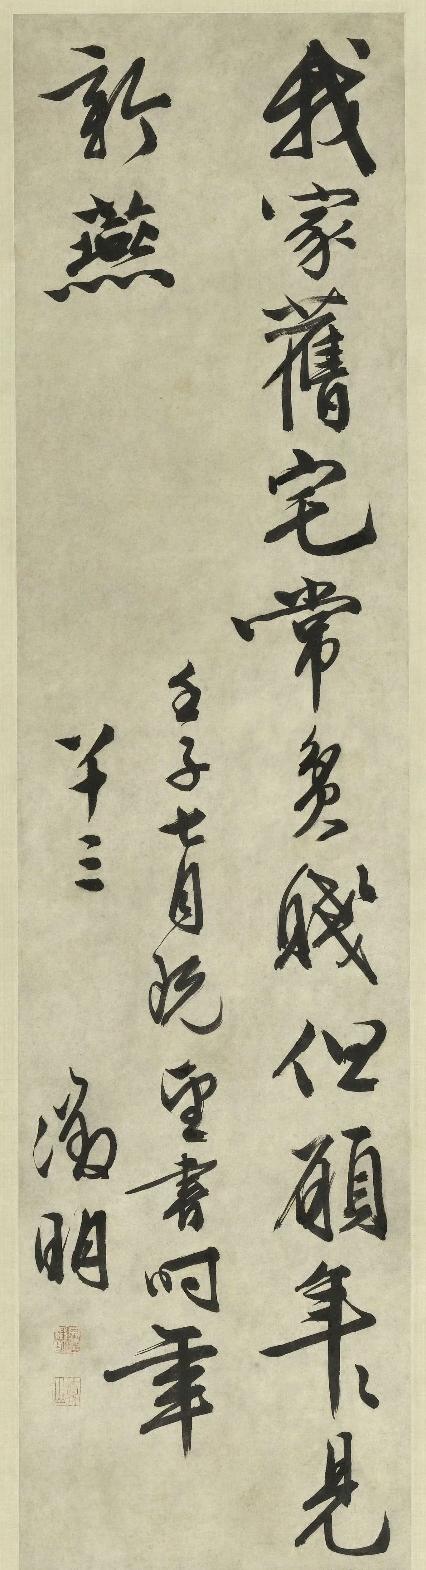 我家舊宅常貧賤但願年〻見
新燕
壬子七月既望書時年
八十三 徵明